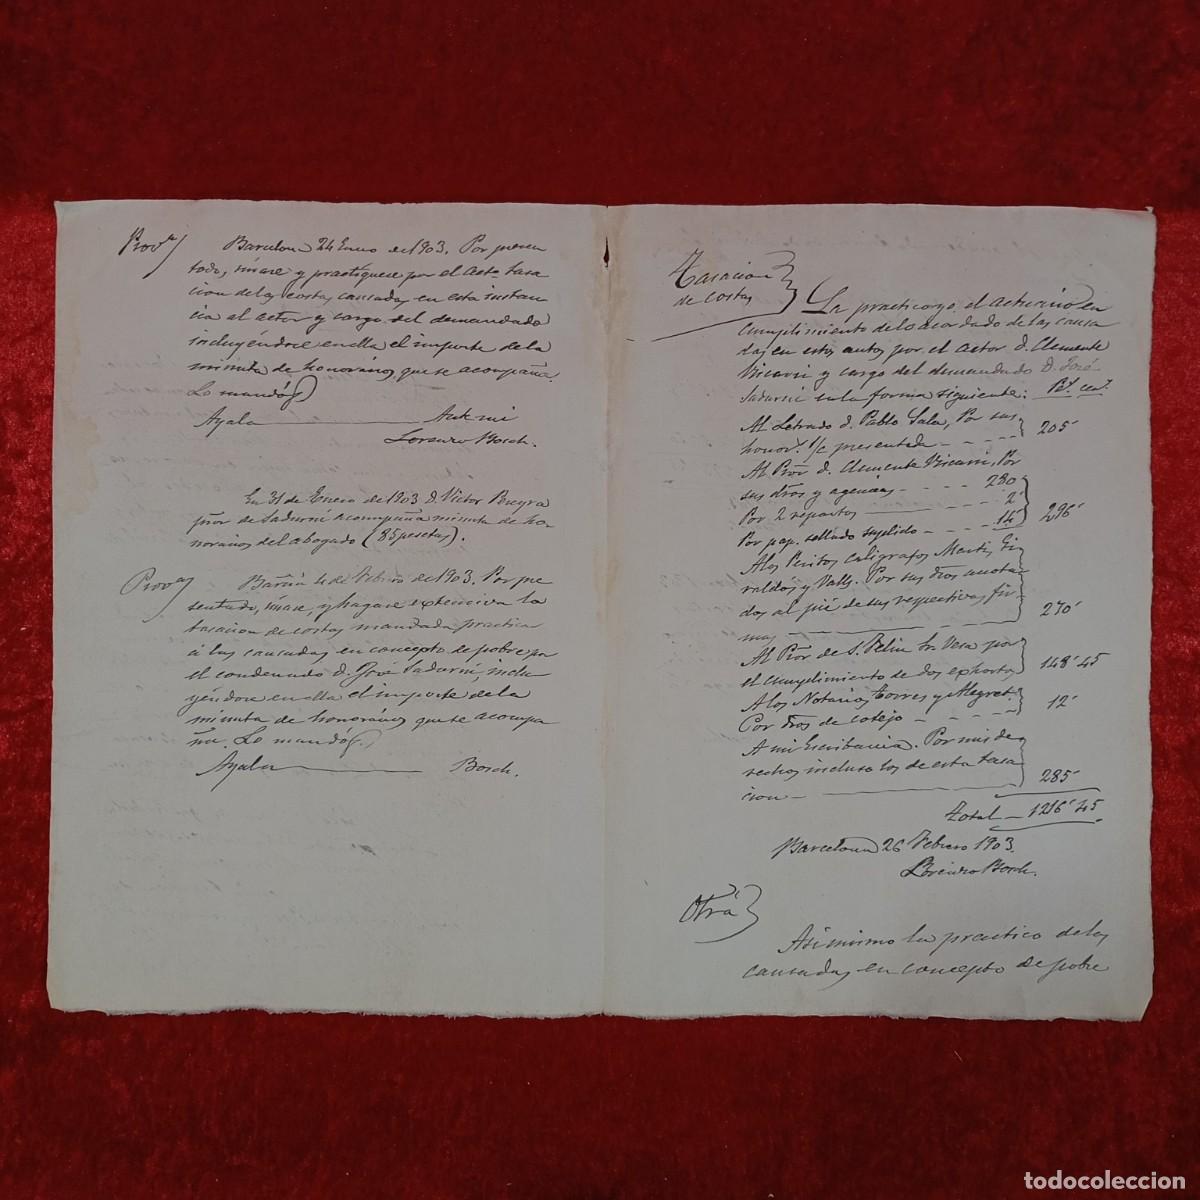 Prov.ª
Barcelona 24 Enero de 1903. Por presen
tado, únase y practíquese por el acto. tasa
cion de las costas causadas en esta instan
cia al actor y cargo del demandado
incluyéndose en ella el importe de la
minuta de honorarios que se acompaña.
Lo mandó
Ayala Ante mi
Lorenzo Bosch.
En 31 de Enero de 1903 D. Victor
pror de Sadurní acompaña minuta de ho
norarios del abogado (85 pesetas).
Prov.ª
Barna 4 de Febrero de 1903. Por pre
sentado, únase, y hagase extensiva la
tasacion de costas mandada practicar
á las causadas en concepto de pobre por
el condenado D. José Sadurní, inclu
yéndose en ella el importe de la
minuta de honorarios que se acompa
ña. Lo mandó
Ayala Bosch.
Tasacion
de costas
La practico yo el actuario en
cumplimiento de lo acordado de las causa
das en estos autos por el actor D. Clemente
y cargo del demandado D. José
Sadurní en la forma siguiente: Pts. cen.
Al Letrado D. Pablo Sala, Por sus
honor.s s/c presentada - - - - 205'
Al Pror D. Clemente Por
sus dros y agencias - - - 280
Por 2 repartos 2'
Por pap. sellado suplido - - - 14' 296'
A los Peritos caligrafos Marti, Gi
raldós y Valls. Por sus dros anota
dos al pié de sus respectivas fir
mas 270'
Al Pror de S. Feliu Sr. Vesa por
el cumplimiento de dos exhortos 148'45
A los Notarios Torres y Alegret
Por dros de cotejo - - - - 12'
A mi Escribania. Por mis de
rechos incluso los de esta tasa
cion 285'
Total 1216'45
Barcelona 26 Febrero 1903.
Lorenzo Bosch.
Otra
Asimismo la practico de las
causadas en concepto de pobre
todocoleccion